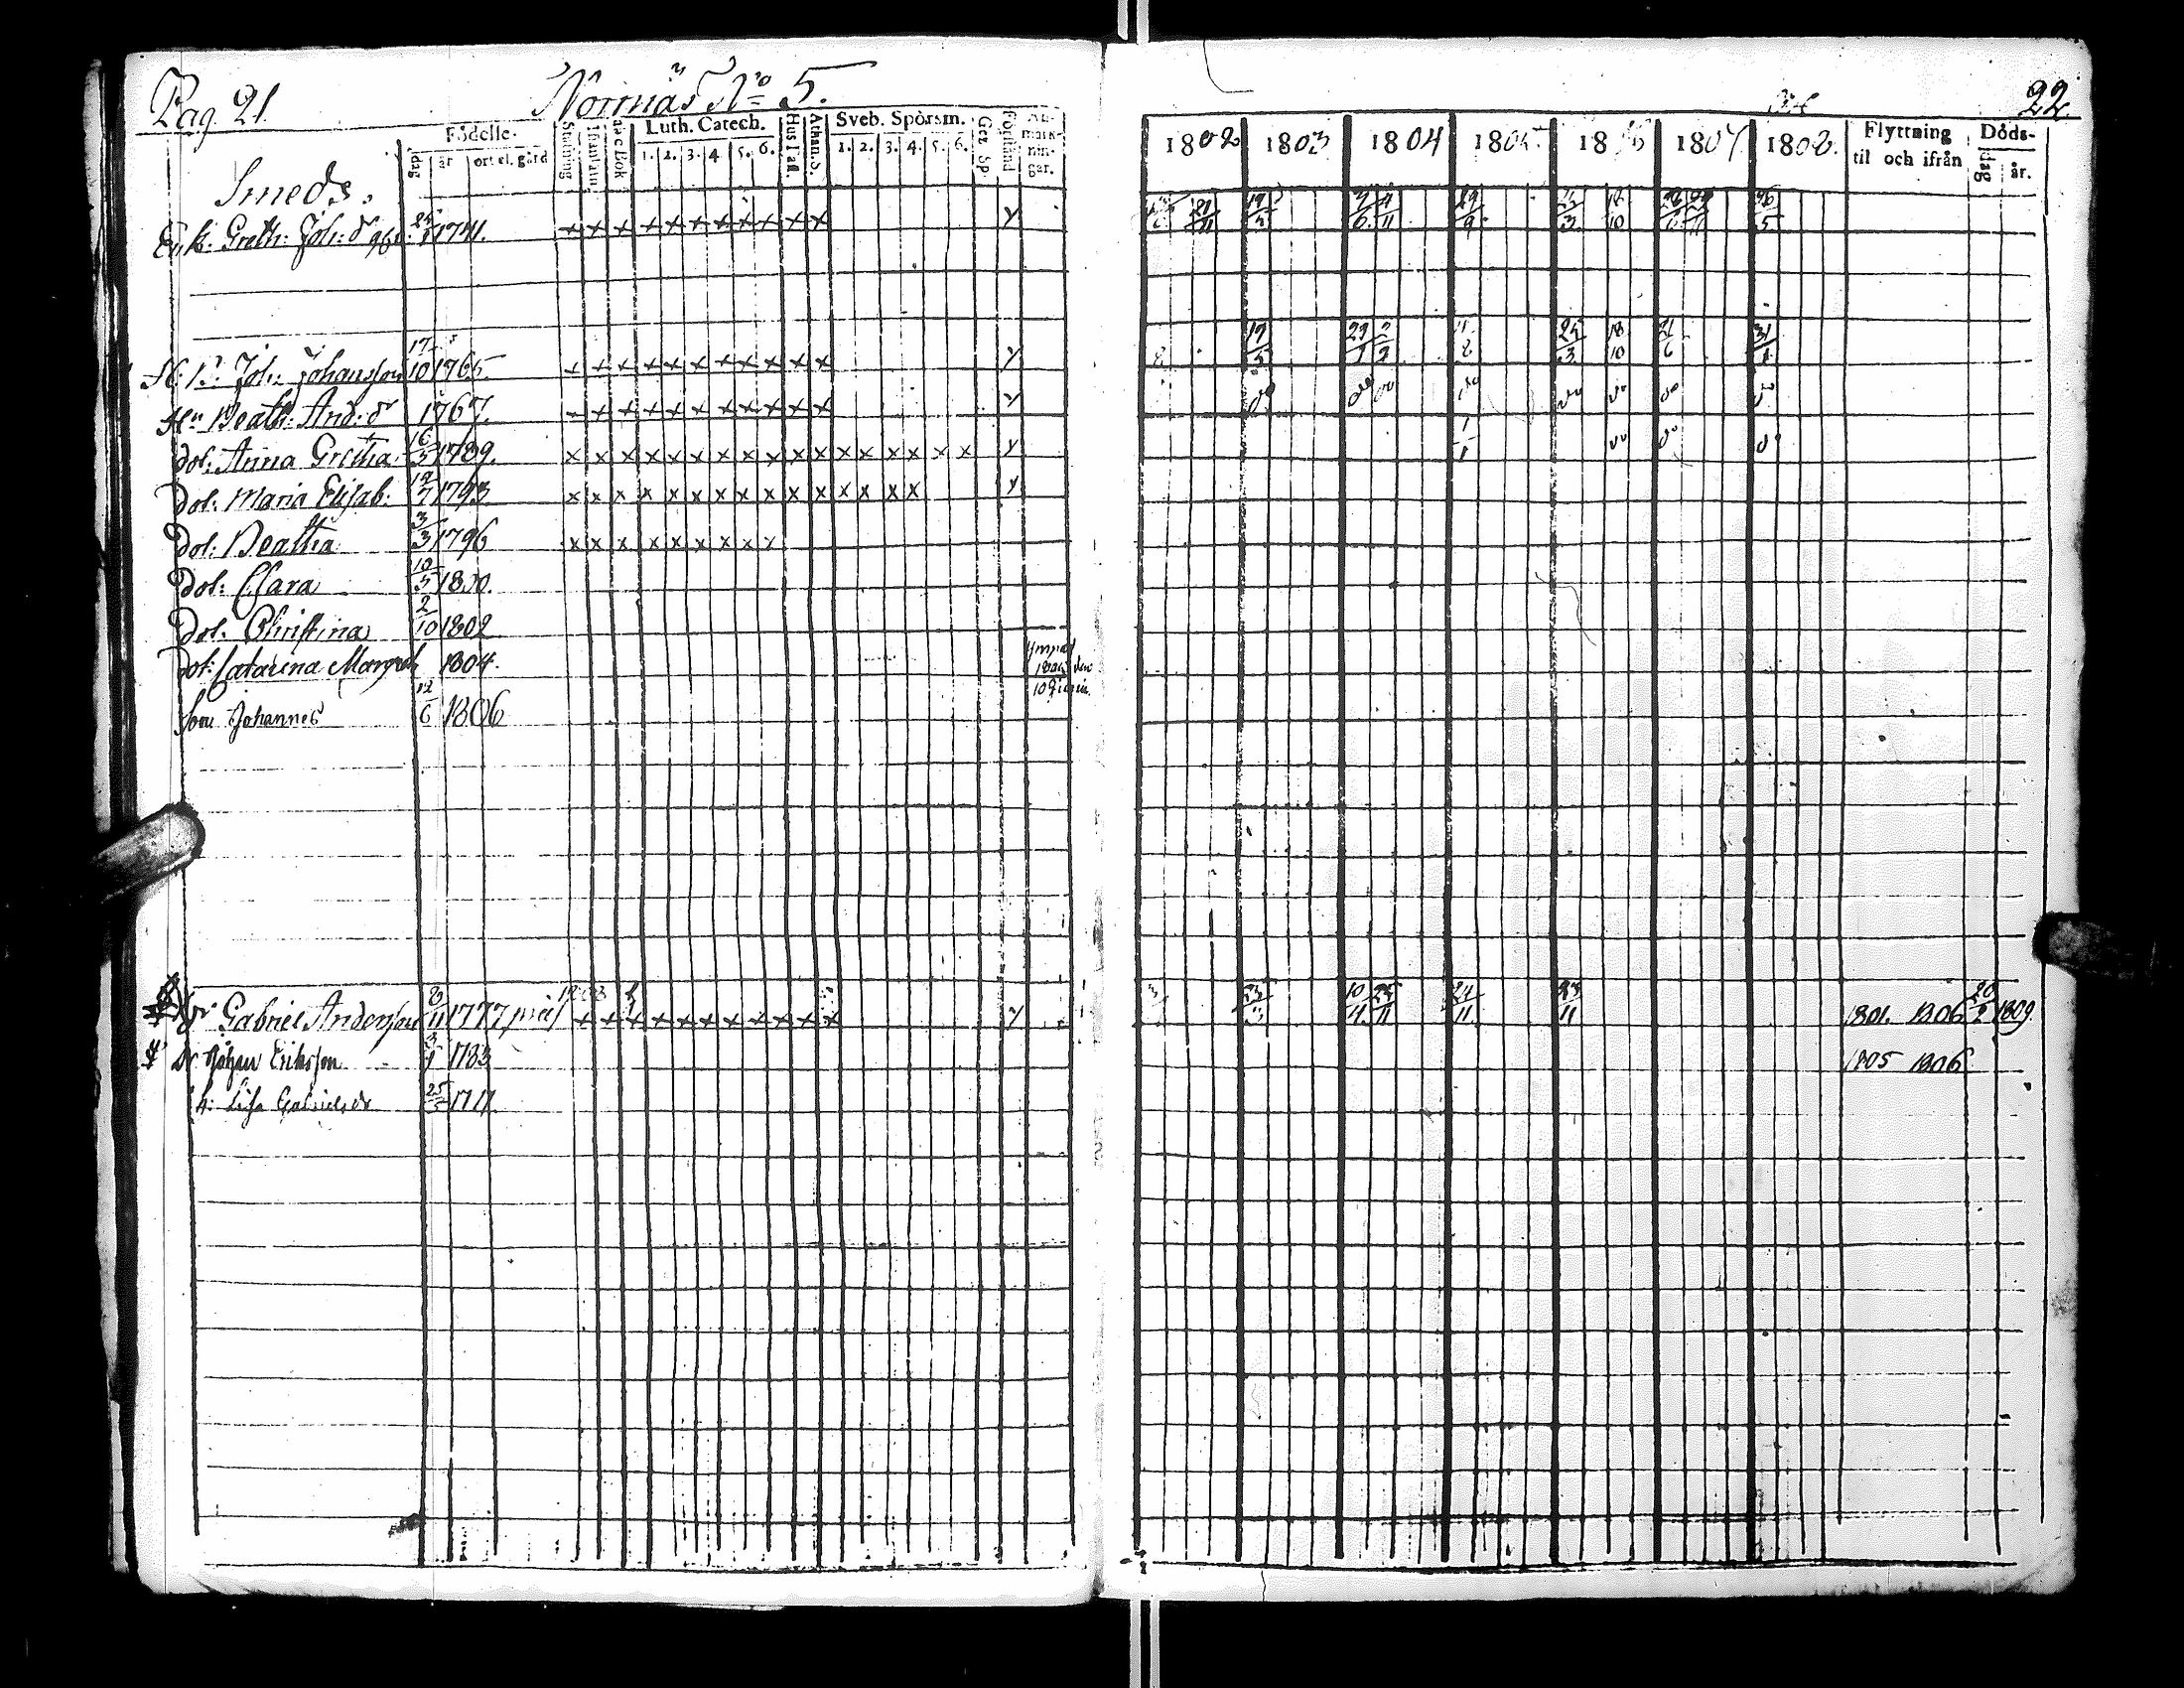 Pag. 21.
Norrnäs No 5.
Födelse-
dag år ort el. gård
Stafning
Innantäin
abc Bok
Luth. Catech.
1. 2. 3. 4 5. 6.
Hus Taf.
Athan. S.
Sveb. Spörsm.
1. 2. 3. 4. 5. 6.
Gez. SP.
Förstånd
An-
märk-
nin-
gar.
Smeds.
Enk: Greth: Joh: dr 1741. x x x x x x x x x x x y
Joh: Johansson 17/10 1765. x x x x x x x x x x x y
Hu Beath: And: dr 1767. x x x x x x x x x x x y
dot: Anna Gretha 16/5 1789. x x x x x x x x x x x x x x x x x y
Dot: Maria Elisab: 12/7 1793 x x x x x x x x x x x x x x x y
dot: Beatha 3/3 1796 x x x x x x x x x
dot: Clara 10/5 1800.
dot: Christina 2/10 1802
dot: Catarina Margreth 1804.
Son Johannes 12/6 1806
Gabriel Andersson 3/11 1777 x x x x x x x x x x x y
Dr Johan Eriksson 1783
h: Lisa Gabrielsdr 25
22.
1802 1803 1804 1805 1806 1807 1808.
Flyttning
til och ifrån
Döds-
dag år.
21/11 19/5 4/11 29/9 18/10 26/5
19/5 29/1 2/2 25/3 18/10 21/6 31/1
do do do do do do do
1/1 do do do
23/3 10/4 25/11 24/11 23/11 1801. 1806 20/2 1809.
1805 1806